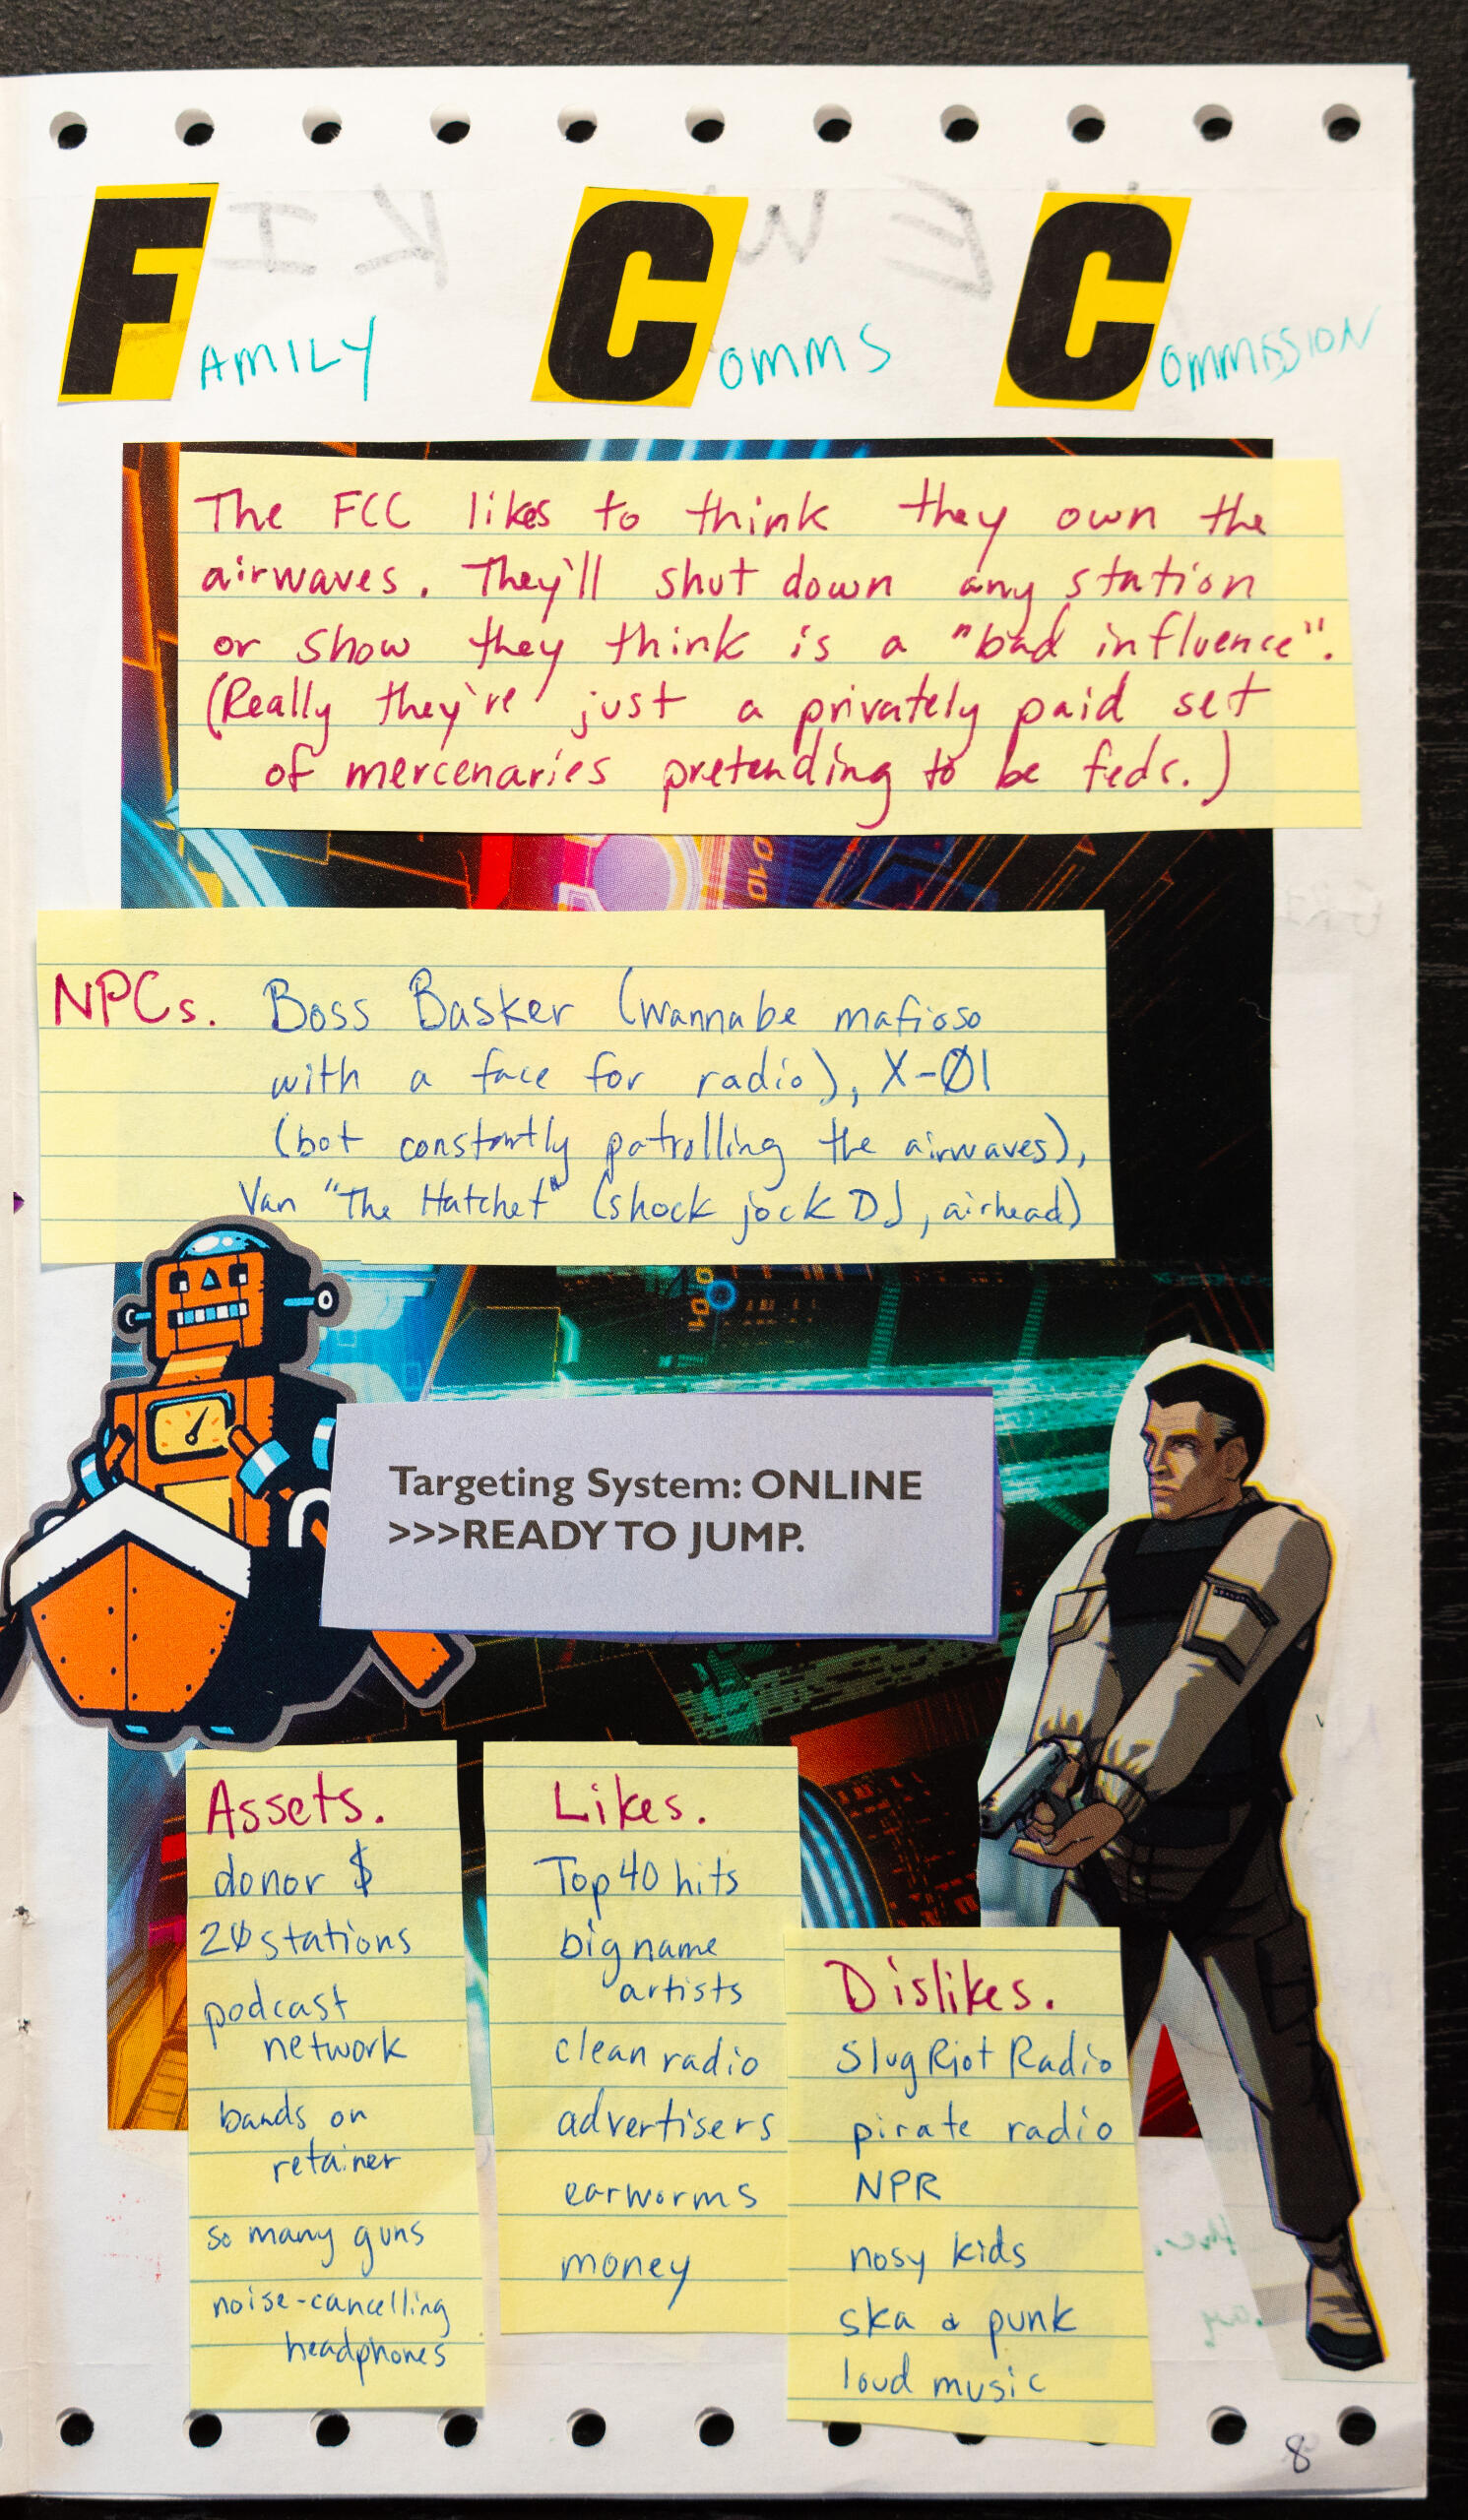 FAMILY COMMS COMMISSION
The FCC likes to think they own the
airwaves. They'll shut down any station
or show they think is a "bad influence".
(Really they're just a privately paid set
of mercenaries pretending to be feds.)
NPCs. Boss Basker (wannabe mafioso
with a face for radio), X-Ø1
(bot constantly patrolling the airwaves),
Van "The Hatchet" (shock jock DJ, airhead)
Targeting System: ONLINE
>>>READY TO JUMP.
Assets.
donor $
2Ø stations
podcast
network
bands on
retainer
so many guns
noise-cancelling
headphones
Likes.
Top 40 hits
big name
artists
clean radio
advertisers
earworms
money
Dislikes.
Slug Riot Radio
pirate radio
NPR
nosy kids
ska & punk
loud music
8